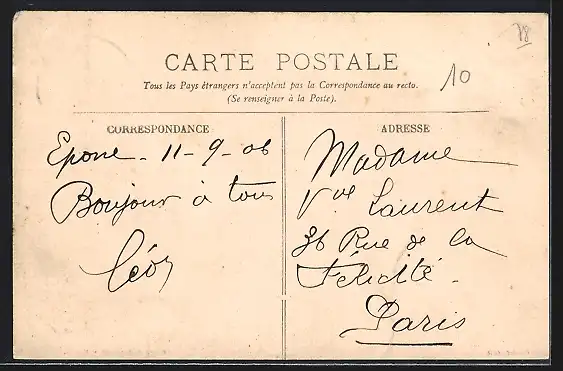 78
CARTE POSTALE
10
Tous les Pays étrangers n'acceptent pas la Correspondance au recto.
(Se renseigner à la Poste).
CORRESPONDANCE
Epone - 11-9-06
Bonjour à tous
Léon
ADRESSE
Madame
Vve Laurent
36 Rue de la
Félicité -
Paris